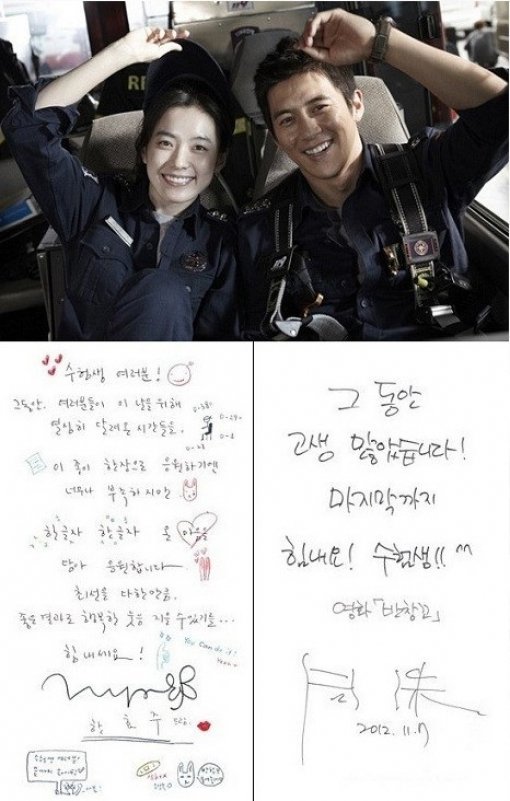 RE
수험생 여러분!
그동안. 여러분들이 이 날을 위해
열심히 달려온 시간들을.
D-29
D-2
이 종이 한장으로 응원하기엔
너무나 부족하지만
한글자 한글자 온 마음을
담아 응원합니다
최선을 다한만큼.
좋은결과로 행복한 웃음 지을 수 있기를...
힘내세요!
You Can do it!
Yeah~
한효주 드림.
그 동안
고생 많았습니다!
마지막까지
힘내요! 수험생!! ^^
영화「반창꼬」
2012. 11. 7